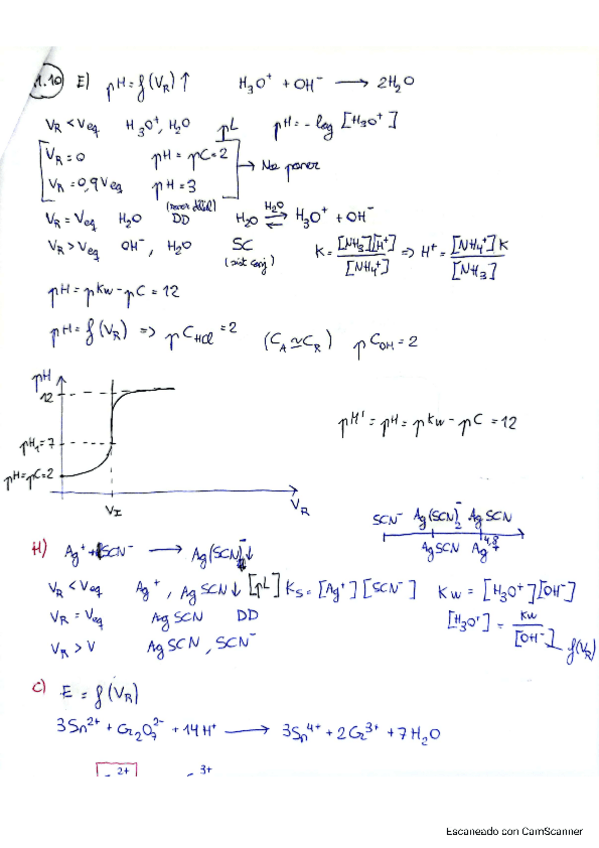 1.10 E) pH = f(VR)↑ H3O+ + OH- → 2H2O
VR < Veq H3O+, H2O pL pH = -log [H3O+]
VR = 0 pH = pC = 2 → No poner
VR = 0,9 Veq pH = 3
VR = Veq H2O DD H2O ⇌ H3O+ + OH-
H2O
VR > Veq OH-, H2O SC K = [NH3][H+]/[NH4+] => H+ = [NH4+]K/[NH3]
pH = pKw - pC = 12
pH = f(VR) => pCHCl = 2 (CA ≃ CR) pCOH = 2
pH
12
pH' = pH = pKw - pC = 12
pH1 = 7
pH = pC = 2
VI VR
SCN- Ag(SCN)2- AgSCN
AgSCN Ag+ 4,8
H) Ag+ + SCN- → Ag(SCN)↓
VR < Veq Ag+, AgSCN↓ [pL] Ks = [Ag+][SCN-] Kw = [H3O+][OH-]
VR = Veq AgSCN DD [H3O+] = Kw/[OH-] f(VR)
VR > V AgSCN, SCN-
C) E = f(VR)
3Sn2+ + Cr2O72- + 14H+ → 3Sn4+ + 2Cr3+ + 7H2O
2+ 3+
Escaneado con CamScanner